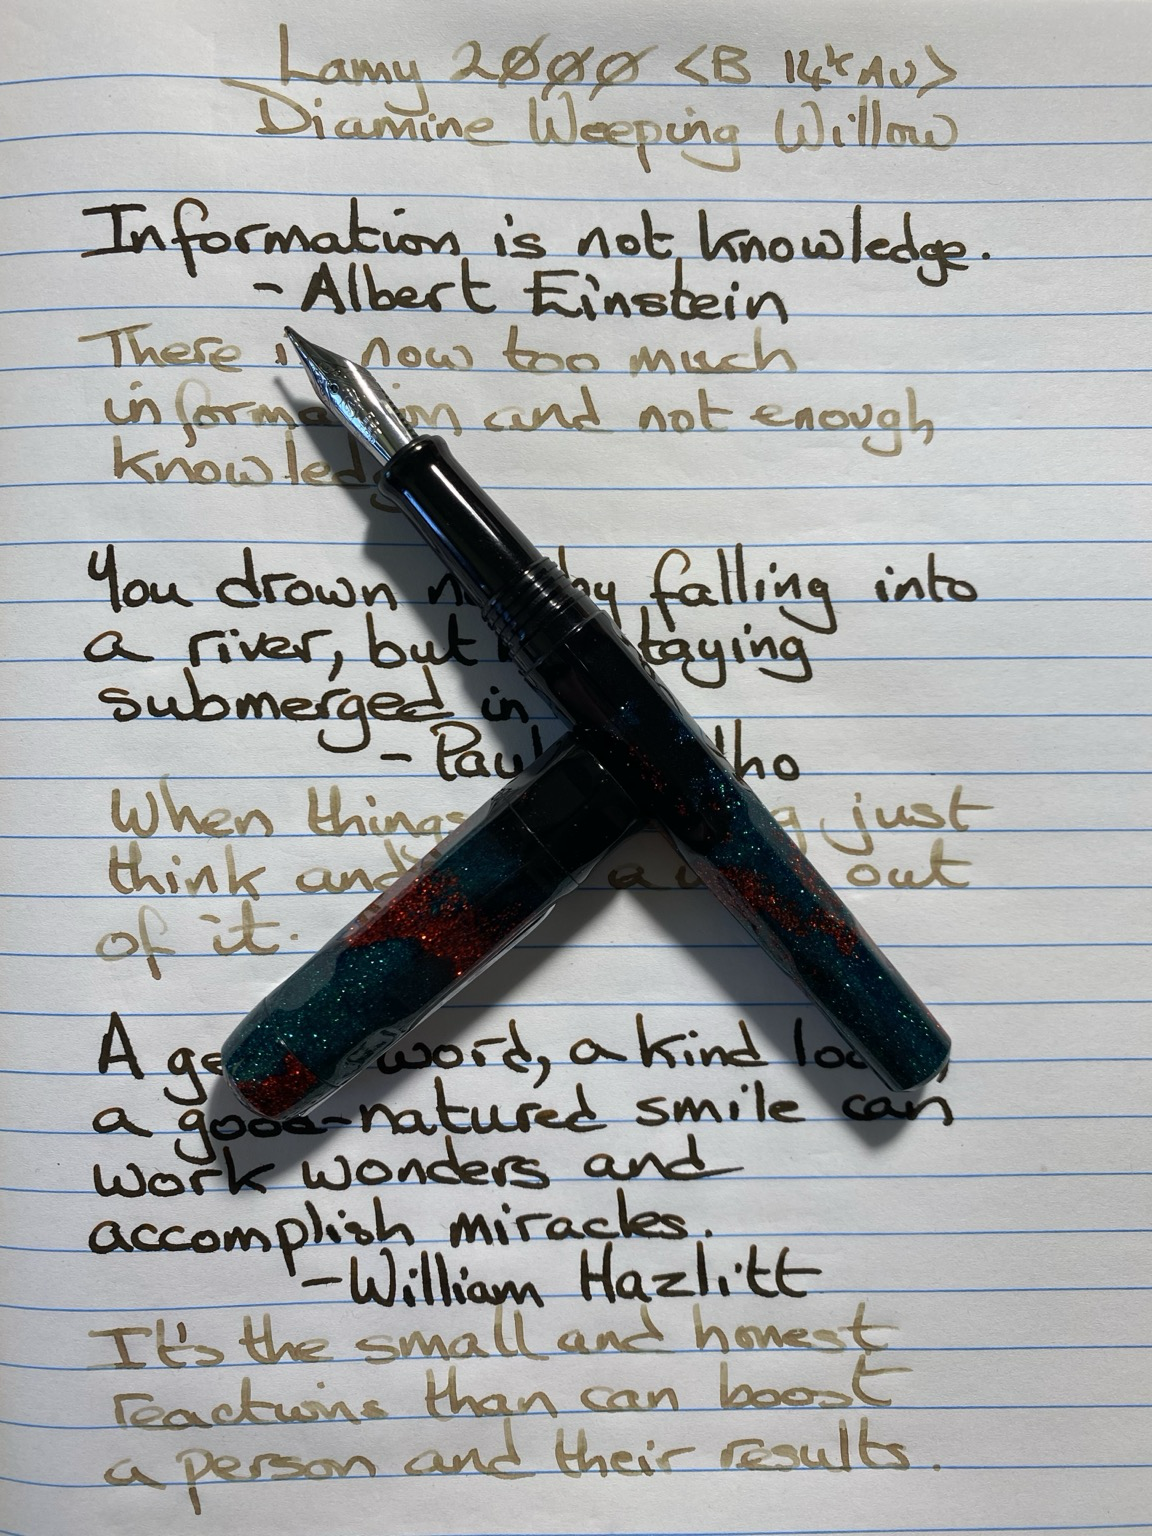 Lamy 2000 <B 14k AU>
Diamine Weeping Willow
Information is not knowledge.
- Albert Einstein
There now too much
information and not enough
knowledge
You drown by falling into
a river, but staying
submerged in
- Paul
When things just
think and a out
of it.
A word, a kind
a good-natured smile can
work wonders and
accomplish miracles.
- William Hazlitt
It's the small and honest
reactions than can boost
a person and their results.